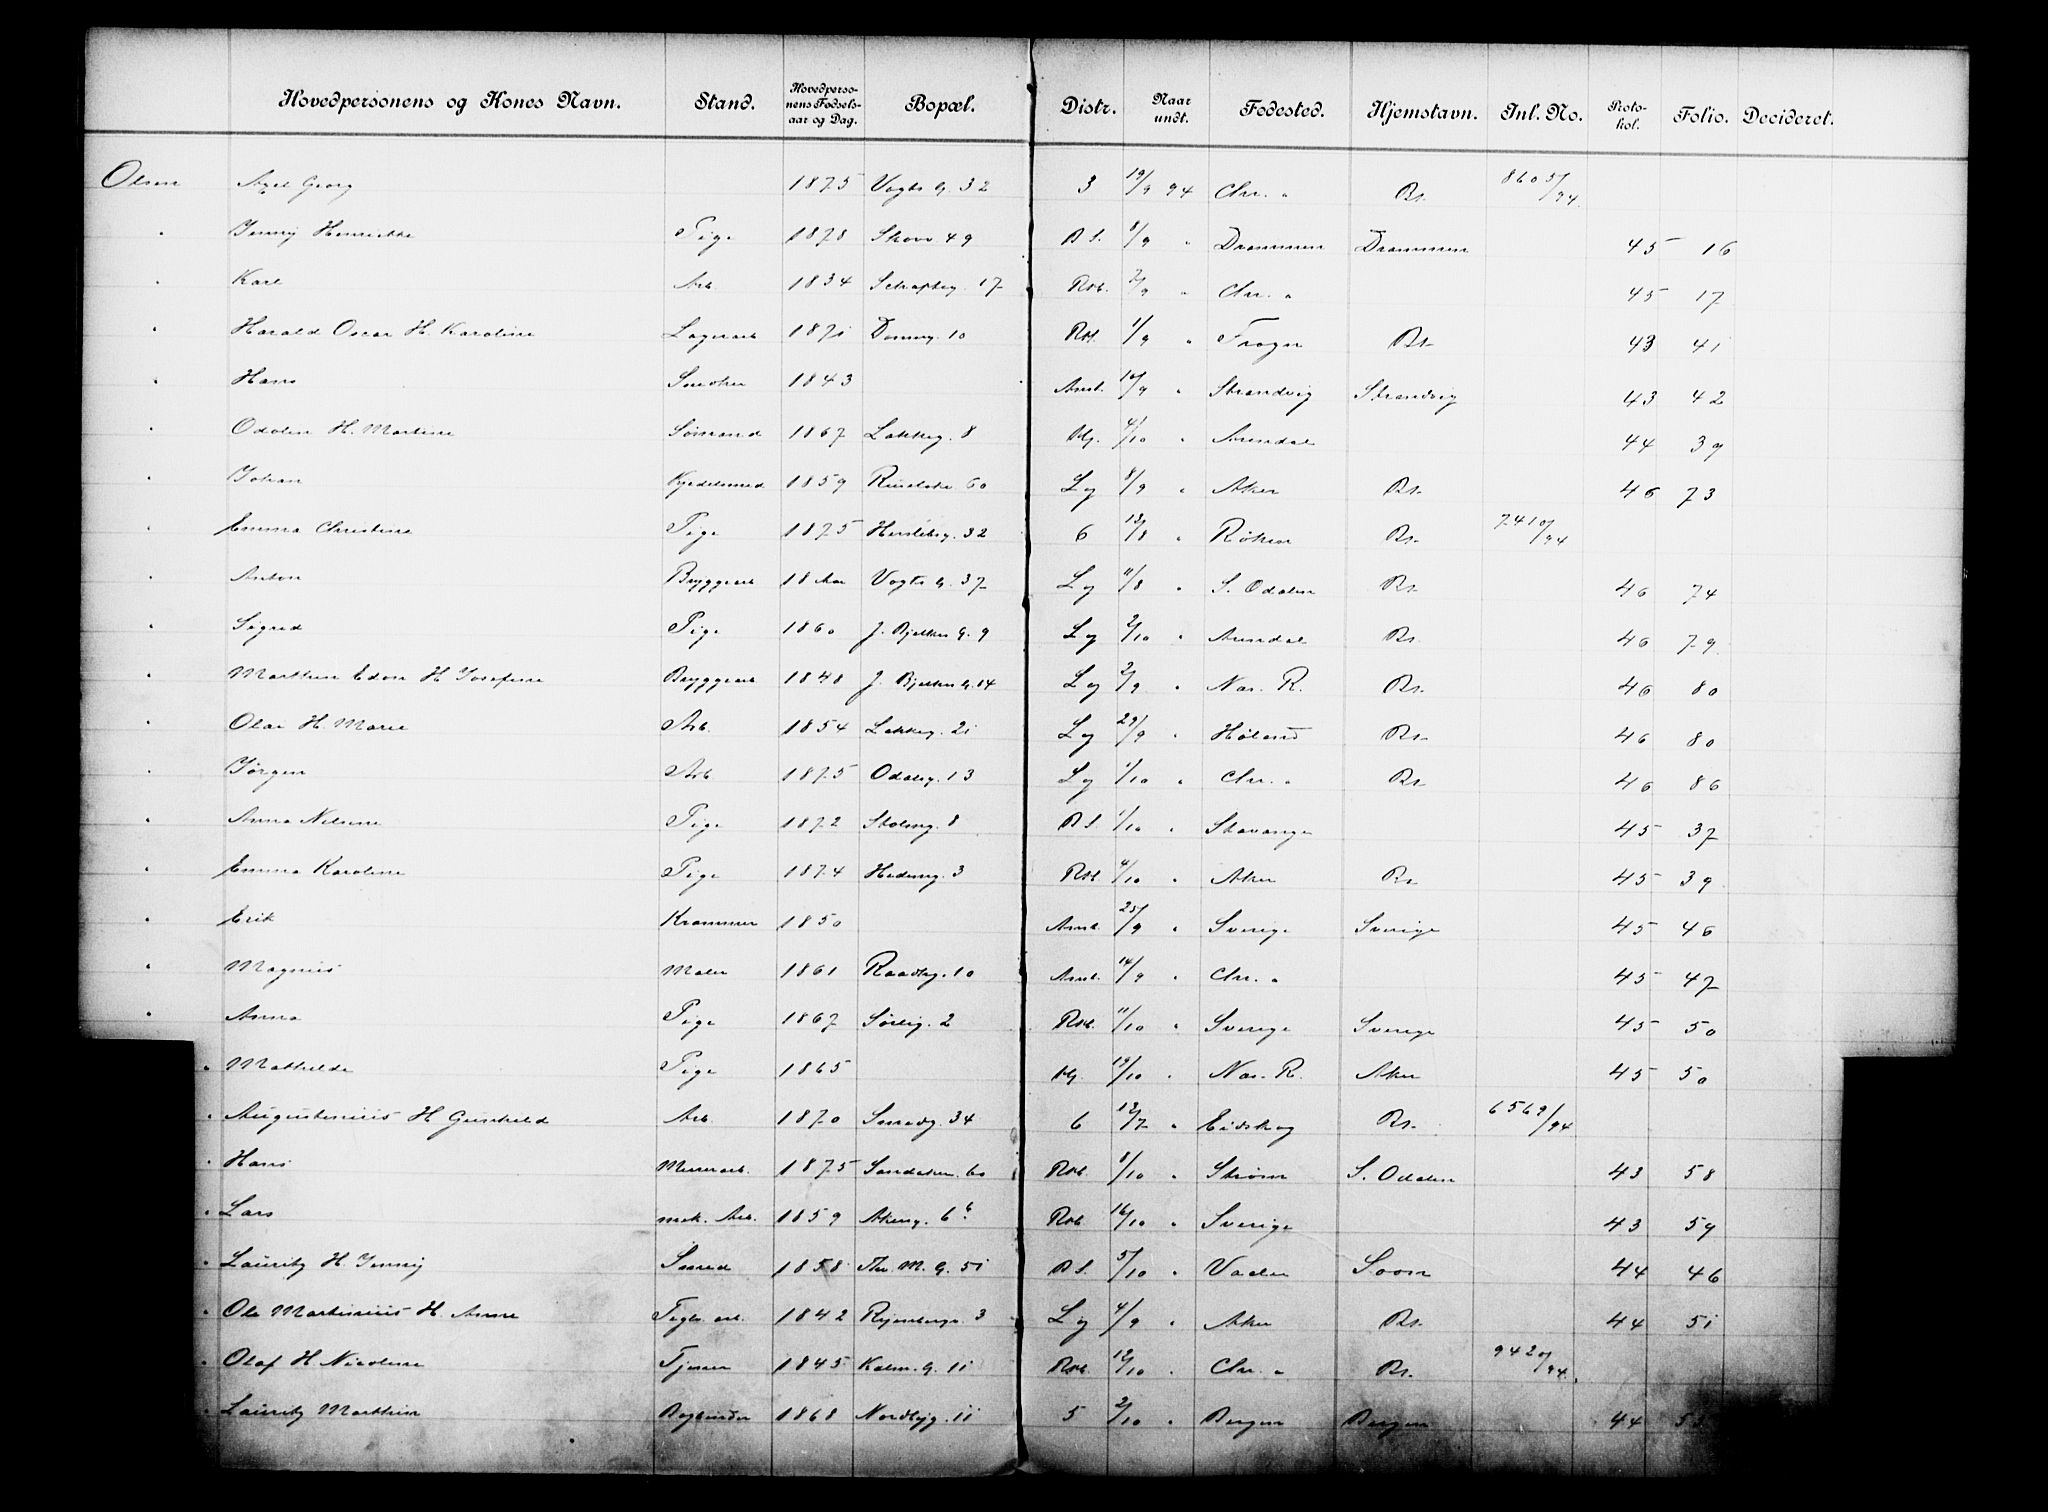 Hovedpersonens og Kones Navn. Stand. Hovedperso-nens Fødsels-aar og Dag. Bopæl. Distr. Naar undt. Fødested. Hjemstavn. Inl. No. Proto-kol. Folio. Decideret.
Olsen Axel Georg 1875 Vogts G. 32 3 19/9 94 Chr. " Bt. 8605/94
" Jenny Henriette Pige 1878 Skovv 49 B S. 8/9 " Drammen Drammen 45 16
" Karl Arb. 1834 Schaftsg. 17 Rst. 7/9 " Chr. " 45 17
" Harald Oscar H. Karoline Lagerarb 1871 Dronng. 10 Rst. 1/9 " Frogn Bt. 43 41
" Hans Snedker 1843 Amt. 10/9 " Strandvig Strandvig 43 42
" Odolin H. Martine Sømand 1867 Lakkeg. 8 Hg. 4/10 " Arendal 44 39
" Johan Kjedelsmed 1859 Ruselsk. 60 Lg 8/9 " Aker Bt. 46 73
" Emma Christine Pige 1875 Herslebsg. 32 6 13/8 " Røken Bt. 7410/94
" Anton Bryggearb 18 Aar Vogts G. 37 Lg 11/8 " S. Odalen Bt. 46 74
" Sigrid Pige 1860 J. Bjelkes G. 9 Lg 2/10 " Arendal Bt. 46 79
" Marthin Edon H Josefine Bryggearb 1848 J. Bjelkes G. 14 Lg 2/9 " Nas. R. Bt. 46 80
" Olai H. Marie Arb. 1854 Lakkeg. 21 Lg 29/9 " Høland Bt. 46 80
" Jørgen Arb 1875 Odalsg. 13 Lg 1/10 " Chr. " Bt. 46 86
" Anna Nilsine Pige 1872 Stolmg. 8 B S. 1/10 " Stavanger 45 37
" Emma Karoline Pige 1874 Hedemg. 3 Rst. 4/10 " Aker Bt 45 39
" Erik Kræmmer 1850 Amt. 25/9 " Sverige Sverige 45 46
" Magnus Maler 1861 Raadhg. 10 Amt. 14/9 " Chr. " 45 47
" Anna Pige 1867 Sørlig. 2 Rst. 11/10 " Sverige Sverige 45 50
" Mathilde Pige 1865 Hg. 19/10 " Nas. R. Aker 45 50
" Augustinius H Gunhild Arb. 1870 Smedg. 34 6 12/7 " Eidskog Bt. 6569/94
" Hans Murerarb. 1875 Sandaker. 60 Rst. 8/10 " Strøm S. Odalen 43 58
" Lars mek. Arb. 1859 Akersg. 6b Rst 16/10 " Sverige 43 59
" Lauritz H. Jenny Smed 1858 Thv. M. G. 51 B S. 5/10 " Vadsø Soon 44 46
" Ole Martinius H. Anne Tegls. arb. 1842 Ryenbergv. 3 Lg 4/9 " Aker Bt. 44 51
" Olaf H Nicoline Tjener 1845 Kalm. G. 11 Rst. 12/10 " Chr. " Bt. 9420/94
" Lauritz Marthin Bogbinder 1868 Nordbyg. 11 5 2/10 " Bergen Bergen 44